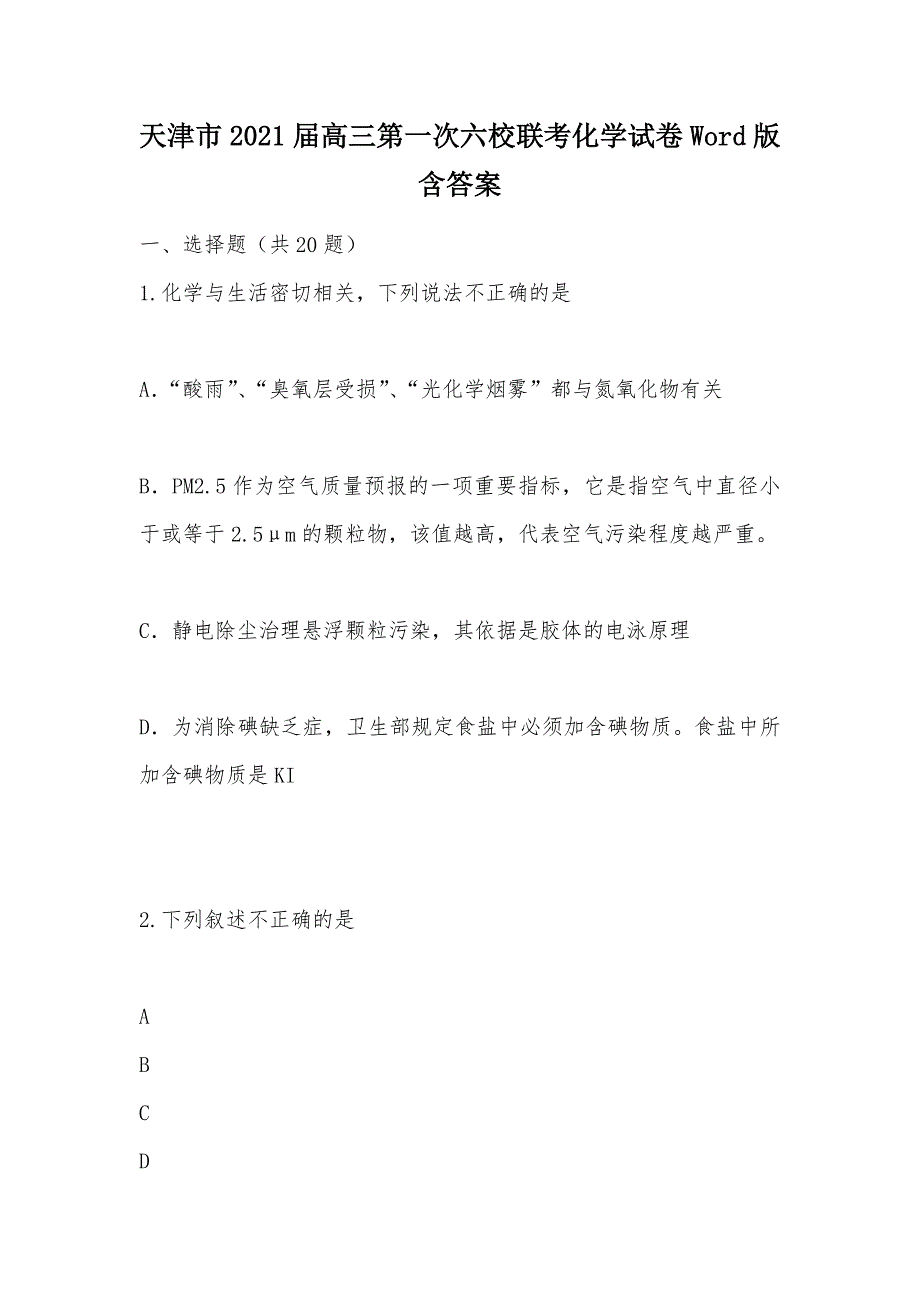 天津市 2021 届高三第一次六校联考化学试卷 Word 版
含答案
一、选择题（共 20 题）
1.化学与生活密切相关，下列说法不正确的是
A．“酸雨”、“臭氧层受损”、“光化学烟雾”都与氮氧化物有关
B．PM2.5 作为空气质量预报的一项重要指标，它是指空气中直径小
于或等于 2.5μm 的颗粒物，该值越高，代表空气污染程度越严重。
C．静电除尘治理悬浮颗粒污染，其依据是胶体的电泳原理
D．为消除碘缺乏症，卫生部规定食盐中必须加含碘物质。食盐中所
加含碘物质是 KI
2.下列叙述不正确的是
A
B
C
D